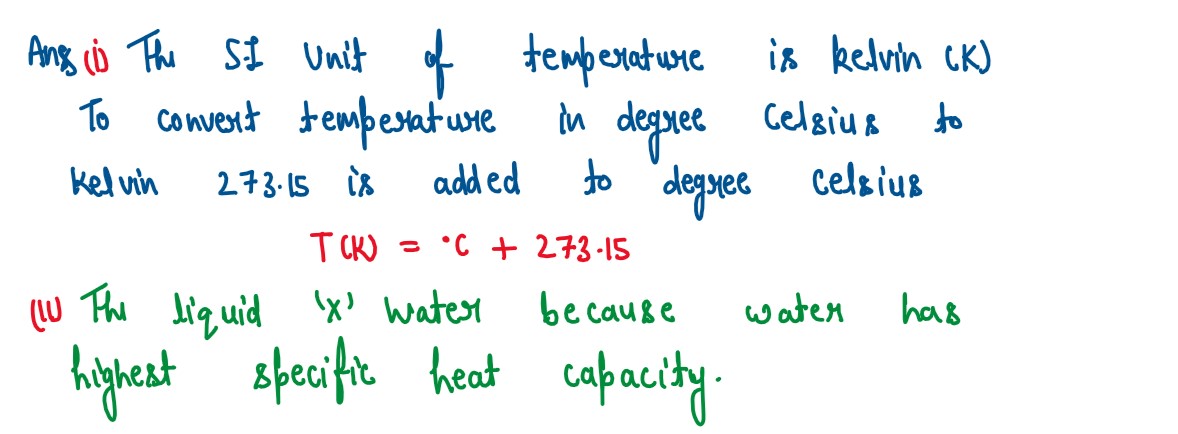 Ans (i) The S.I Unit of temperature is kelvin (K)
To convert temperature in degree Celsius to
Kelvin 273.15 is added to degree Celsius
T(K) = °C + 273.15
(ii) The liquid 'X' water because water has
highest specific heat capacity.